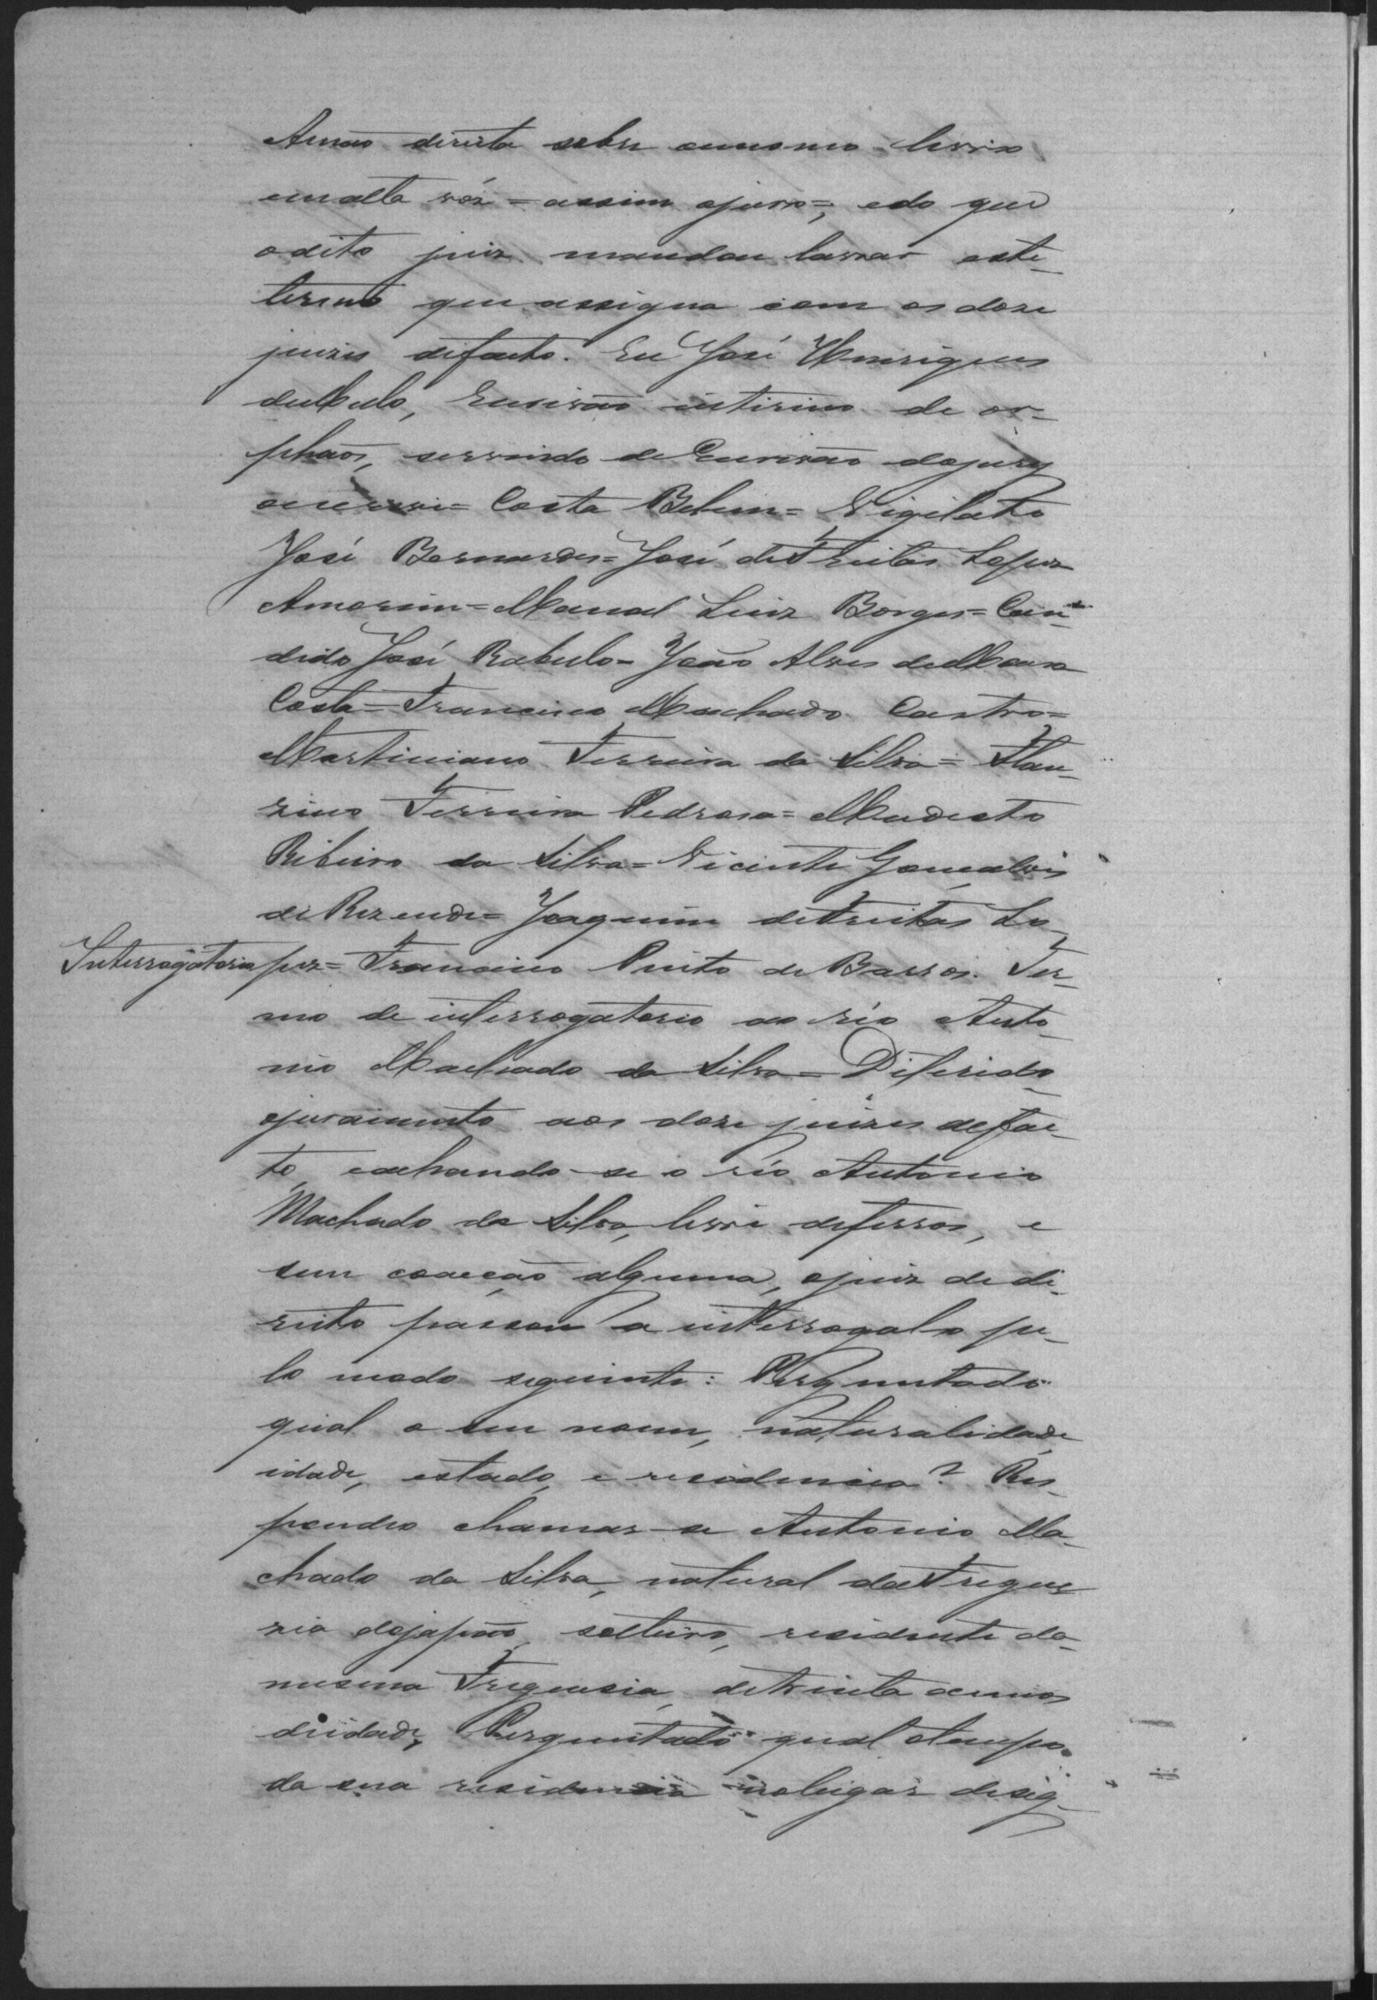 Amão direita sobre omesmo livro
emalta vóz = assim ojuro =, edo que
odito juiz mandou lavrar este
termo que assigna com os doze
juizes defacto. Eu José Henriques
de Mello, Escrivão interino de or-
phãos, servindo de Escrivão dojury
oescrevi = Costa Belem = Vigilato
José Bernardes = José de Freitas Lopes
Amorim = Manoel Luiz Borges = Can-
dido José Rabello = João Alves de Moura
Costa = Francisco Machado Castro =
Martiniano Ferreira da Silva = Flau-
zino Ferreira Pedrosa = Modesto
Ribeiro da Silva = Vicente Gonçalves
de Rezende = Joaquim de Freitas Lo-
Interrogatorio pes = Francisco Pinto de Barros. Ter-
mo de interrogatorio ao réo Anto-
nio Machado da Silva = Diferido
ojuramento aos doze juizes defac-
to, eachando-se o réo Antonio
Machado da Silva, livre deferros, e
sem coacção alguma, ojuiz de di-
reito passou a interrogalo pe-
lo modo seguinte: Perguntado
qual o seu nome, naturalidade
idade, estado, e residencia? Res-
pondeo chamar-se Antonio Ma-
chado da Silva, natural da Fregue
zia dojapão, solteiro, residente da
mesma Freguesia, detrinta annos
deidade, Perguntado qual otempo
da sua residencia nolugar desig-